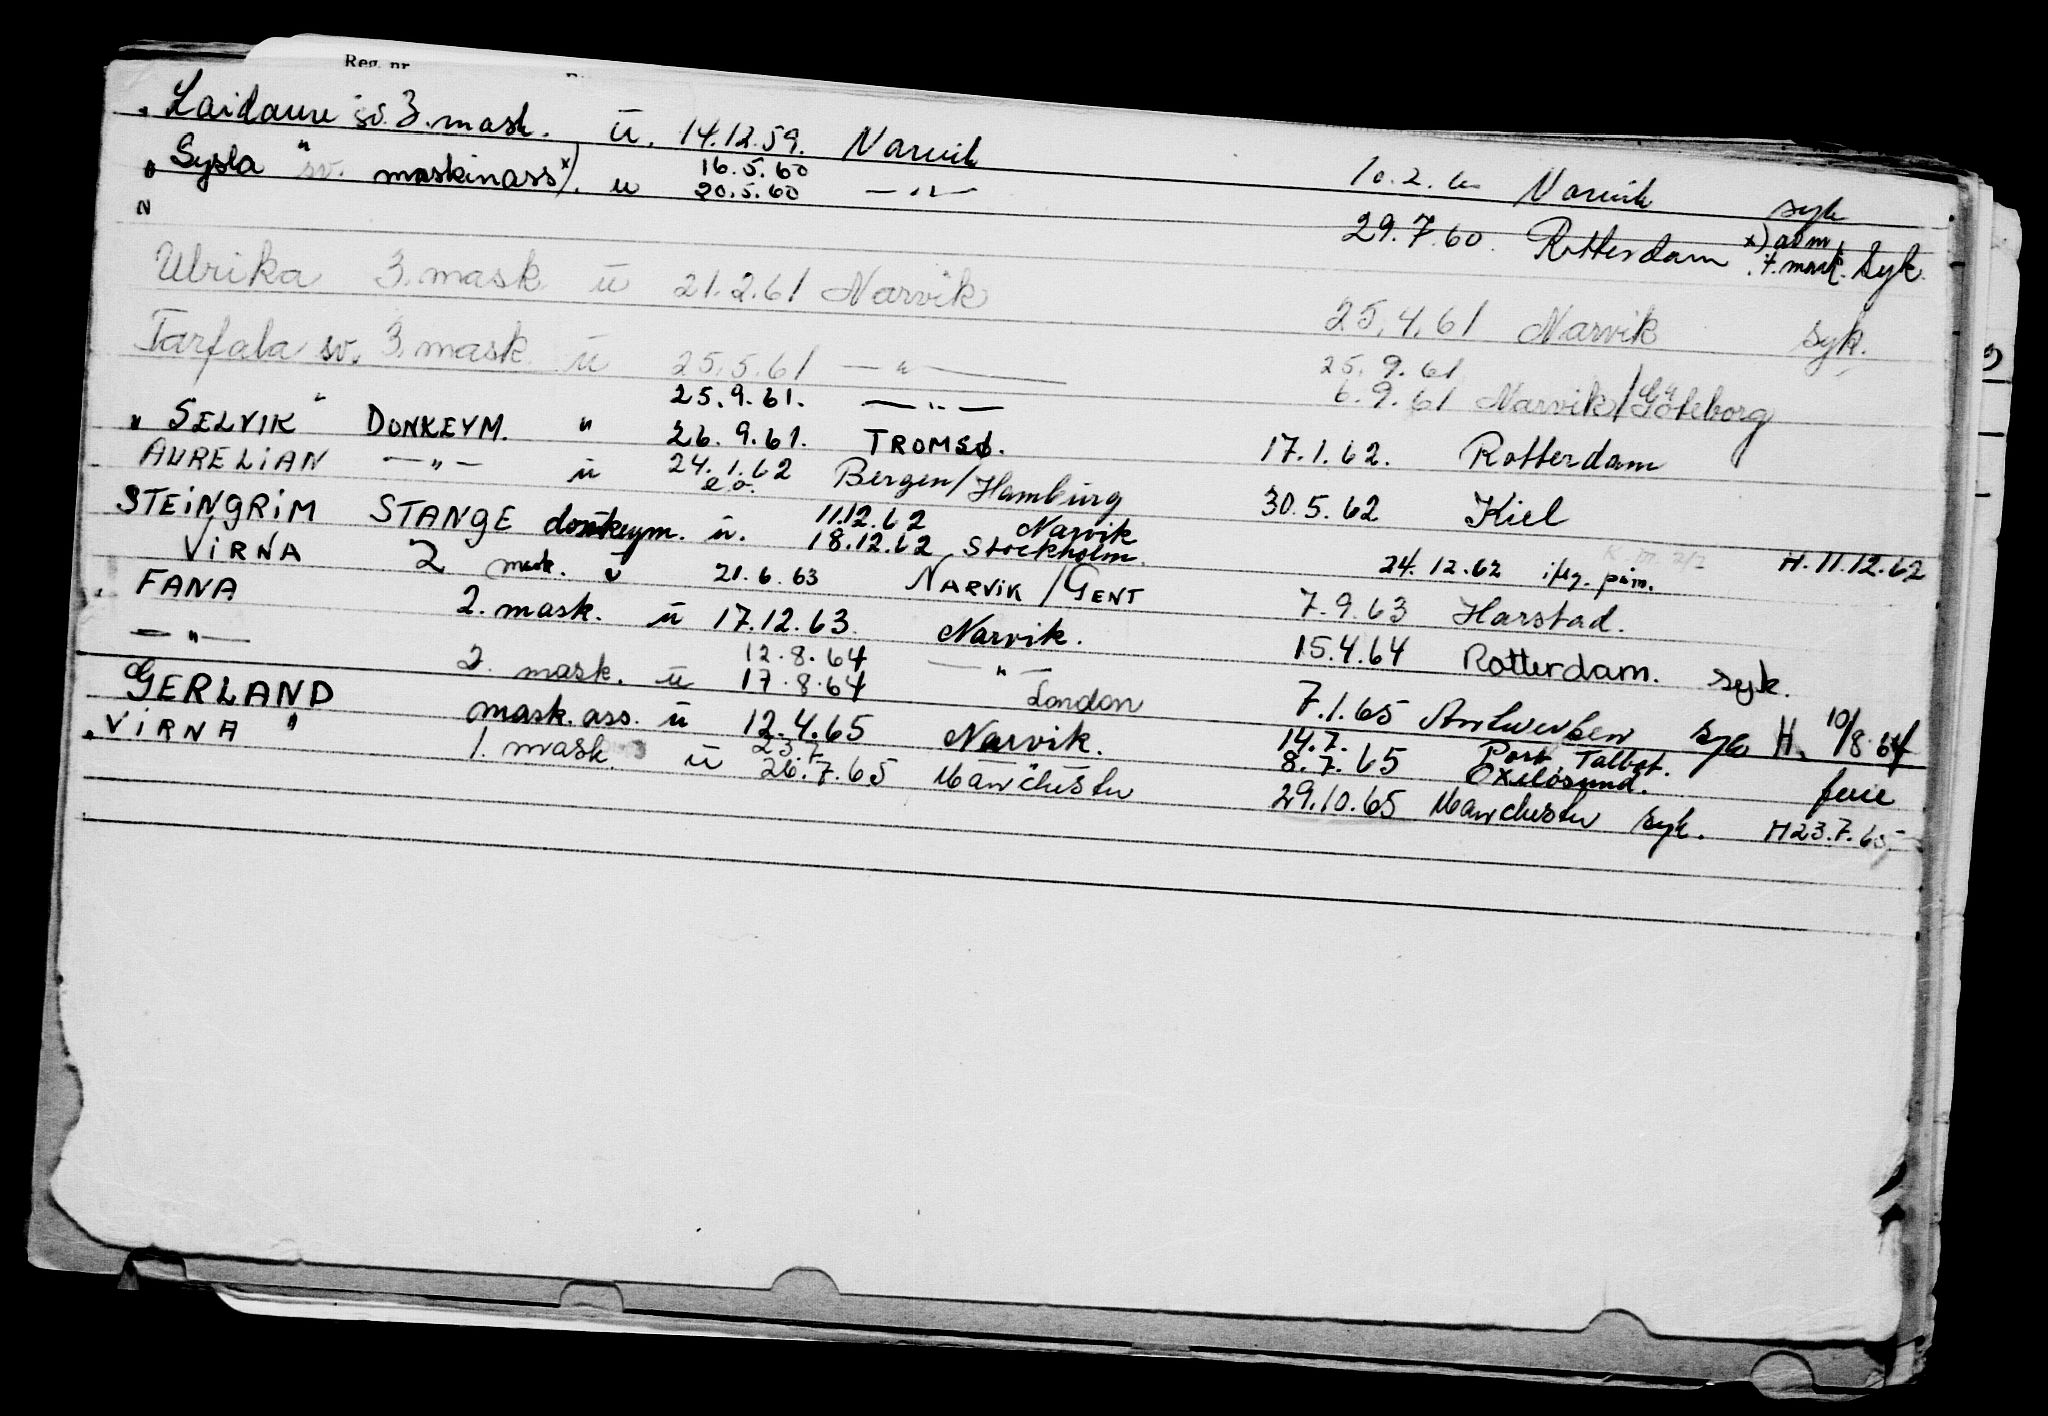 Reg. nr
" Laidaure sv. 3. mask. ü. 14.12.59. Narvik 10.2.60 Narvik syk
" Sysla " sv. maskinass x). ü 16.5.60
20.5.60 — " — 29.7.60. Rotterdam x) adm. syk.
"
Ulrika 3. mask ü 21.2.61 Narvik 25.4.61 Narvik syk.
Tarfala sv. 3. mask ü 25.5.61 — " — 25.9.61
6.9.61 Narvik/Göteborg
" SELVIK " DONKEYM. " 25.9.61. — " —
26.9.61. TROMSØ. 17.1.62. Rotterdam
AURELIAN — " — ü 24.1.62 Bergen/Hamburg 30.5.62 Kiel
e.o.
STEINGRIM STANGE donkeym. ü. 11.12.62 Narvik
18.12.62 Stockholm. 24.12.62 iflg. påm. H. 11.12.62
VIRNA 2 mask. ü 21.6.63 NARVIK/GENT 7.9.63 Harstad.
FANA 2. mask. ü 17.12.63. Narvik. 15.4.64 Rotterdam. syk.
— " — 2. mask. ü 12.8.64 — " —
17.8.64 London 7.1.65 Antwerpen syk H. 10/8.64
GERLAND mask.ass. ü 12.4.65 Narvik. 14.7. Port Talbot.
8.7.65 Oxelösund. ferie
" VIRNA " 1. mask. ü 23.7
26.7.65 Manchester 29.10.65 Manchester syk. H 23.7.65